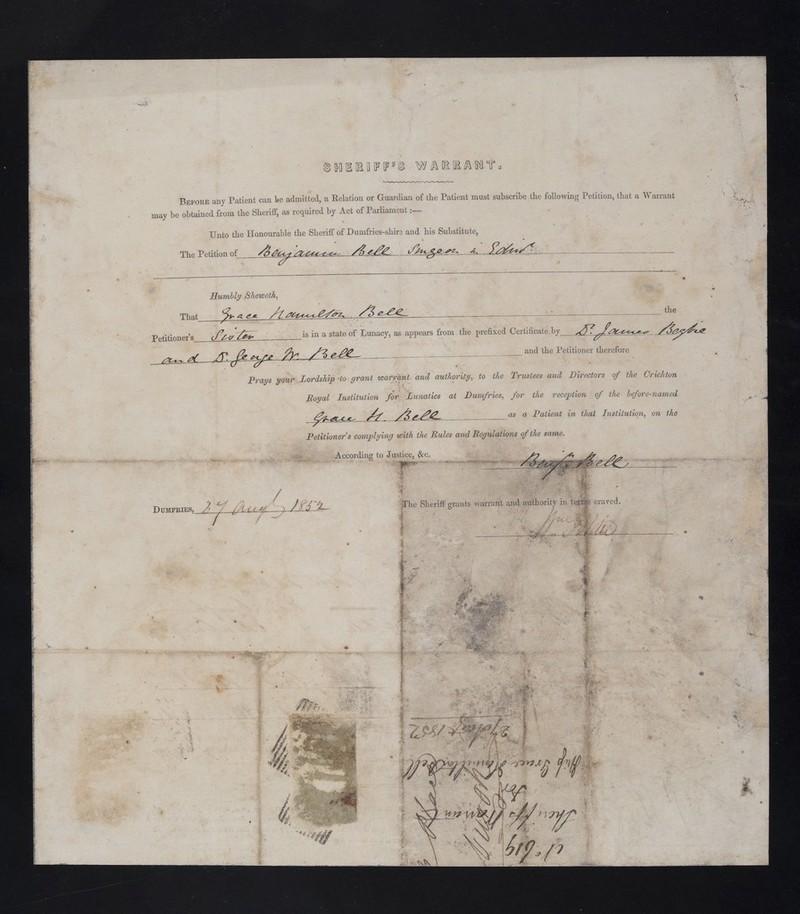 SHERIFF'S WARRANT.
BEFORE any Patient can be admitted, a Relation or Guardian of the Patient must subscribe the following Petition, that a Warrant
may be obtained from the Sheriff, as required by Act of Parliament :—
Unto the Honourable the Sheriff of Dumfries-shire and his Substitute,
The Petition of Benjamin Bell Surgeon in Edinr.
Humbly Sheweth,
That Grace Hamilton Bell the
Petitioner's Sister is in a state of Lunacy, as appears from the prefixed Certificate by Dr. James Begbie
and Dr. George W. Bell and the Petitioner therefore
Prays your Lordship to grant warrant and authority, to the Trustees and Directors of the Crichton
Royal Institution for Lunatics at Dumfries, for the reception of the before-named
Grace H. Bell as a Patient in that Institution, on the
Petitioner's complying with the Rules and Regulations of the same.
According to Justice, &c.
Benjn. Bell
DUMFRIES, 27 Augt, 1852
The Sheriff grants warrant and authority in terms craved.
27 Augt 1852
Miss Grace Hamilton Bell
for
Sheriff's Warrant
No 619